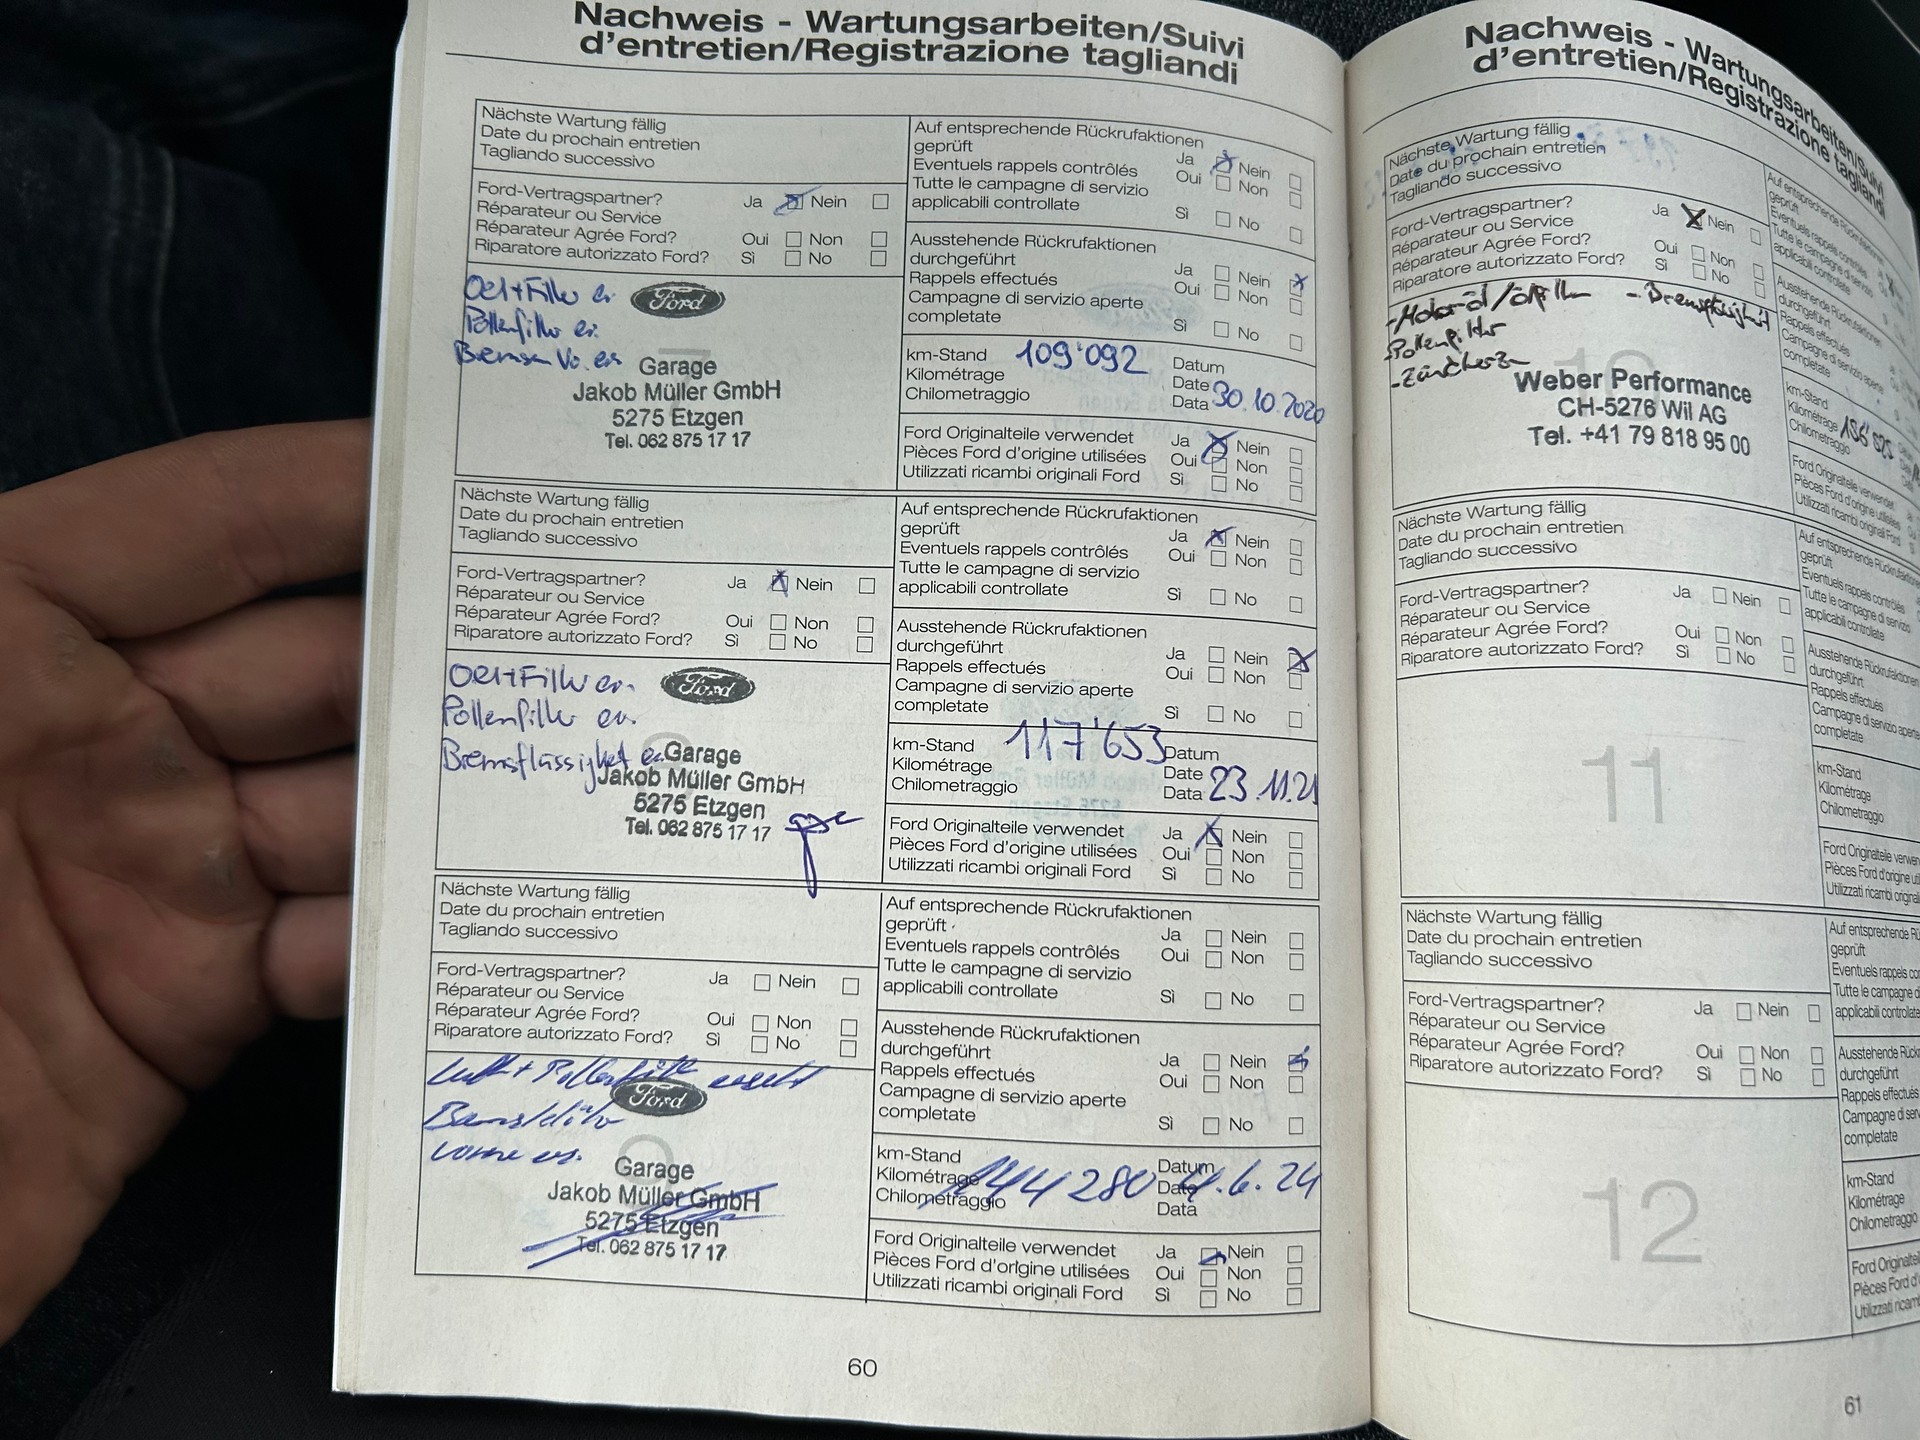 Nachweis - Wartungsarbeiten/Suivi
d'entretien/Registrazione tagliandi
Nächste Wartung fällig
Date du prochain entretien
Tagliando successivo
Ford-Vertragspartner? Ja Nein
Réparateur ou Service
Réparateur Agrée Ford? Oui Non
Riparatore autorizzato Ford? Sì No
Oel+Filter er.
Pollenfilter er.
Bremsen Vo. er.
Ford
Garage
Jakob Müller GmbH
5275 Etzgen
Tel. 062 875 17 17
Auf entsprechende Rückrufaktionen
geprüft Ja Nein
Eventuels rappels contrôlés Oui Non
Tutte le campagne di servizio
applicabili controllate Sì No
Ausstehende Rückrufaktionen
durchgeführt Ja Nein
Rappels effectués Oui Non
Campagne di servizio aperte
completate Sì No
km-Stand 109'092 Datum
Kilométrage Date 30.10.2020
Chilometraggio Data
Ford Originalteile verwendet Ja Nein
Pièces Ford d'origine utilisées Oui Non
Utilizzati ricambi originali Ford Sì No
Nächste Wartung fällig
Date du prochain entretien
Tagliando successivo
Ford-Vertragspartner? Ja Nein
Réparateur ou Service
Réparateur Agrée Ford? Oui Non
Riparatore autorizzato Ford? Sì No
Oel+Filter er.
Pollenfilter er.
Bremsflüssigket er.
Ford
Garage
Jakob Müller GmbH
5275 Etzgen
Tel. 062 875 17 17
Auf entsprechende Rückrufaktionen
geprüft Ja Nein
Eventuels rappels contrôlés Oui Non
Tutte le campagne di servizio
applicabili controllate Sì No
Ausstehende Rückrufaktionen
durchgeführt Ja Nein
Rappels effectués Oui Non
Campagne di servizio aperte
completate Sì No
km-Stand 117'653 Datum
Kilométrage Date 23.11.21
Chilometraggio Data
Ford Originalteile verwendet Ja Nein
Pièces Ford d'origine utilisées Oui Non
Utilizzati ricambi originali Ford Sì No
Nächste Wartung fällig
Date du prochain entretien
Tagliando successivo
Ford-Vertragspartner? Ja Nein
Réparateur ou Service
Réparateur Agrée Ford? Oui Non
Riparatore autorizzato Ford? Sì No
Luft + Pollenfilter ersetzt
vorne er.
Ford
9
Garage
Jakob Müller GmbH
5275 Etzgen
Tel. 062 875 17 17
Auf entsprechende Rückrufaktionen
geprüft Ja Nein
Eventuels rappels contrôlés Oui Non
Tutte le campagne di servizio
applicabili controllate Sì No
Ausstehende Rückrufaktionen
durchgeführt Ja Nein
Rappels effectués Oui Non
Campagne di servizio aperte
completate Sì No
km-Stand Datum
Kilométrage 144 280 Date 4.6.24
Chilometraggio Data
Ford Originalteile verwendet Ja Nein
Pièces Ford d'origine utilisées Oui Non
Utilizzati ricambi originali Ford Sì No
60
Nachweis - Wartungsarbeiten/Suivi
d'entretien/Registrazione tagliandi
Nächste Wartung fällig
Date du prochain entretien
Tagliando successivo
Ford-Vertragspartner? Ja Nein
Réparateur ou Service
Réparateur Agrée Ford? Oui Non
Riparatore autorizzato Ford? Sì No
-Motoröl/ölfilter -Bremsflüssigkeit
Pollenfilter
-Zündkerzen
10
Weber Performance
CH-5276 Wil AG
Tel. +41 79 818 95 00
Auf entsprechende Rückrufaktionen
geprüft
Eventuels rappels contrôlés
Tutte le campagne di servizio
applicabili controllate
Ausstehende Rückrufaktionen
durchgeführt
Rappels effectués
Campagne di servizio aperte
completate
km-Stand
Kilométrage
Chilometraggio
Ford Originalteile verwendet
Pièces Ford d'origine utilisées
Utilizzati ricambi originali Ford
Nächste Wartung fällig
Date du prochain entretien
Tagliando successivo
Ford-Vertragspartner? Ja Nein
Réparateur ou Service
Réparateur Agrée Ford? Oui Non
Riparatore autorizzato Ford? Sì No
11
Auf entsprechende Rückrufaktionen
geprüft
Eventuels rappels contrôlés
Tutte le campagne di servizio
applicabili controllate
Ausstehende Rückrufaktionen
durchgeführt
Rappels effectués
Campagne di servizio aperte
completate
km-Stand
Kilométrage
Chilometraggio
Ford Originalteile verwen
Pièces Ford d'origine uti
Utilizzati ricambi original
Nächste Wartung fällig
Date du prochain entretien
Tagliando successivo
Ford-Vertragspartner? Ja Nein
Réparateur ou Service
Réparateur Agrée Ford? Oui Non
Riparatore autorizzato Ford? Sì No
12
Auf entsprechende Rü
geprüft
Eventuels rappels con
Tutte le campagne d
applicabili controllate
Ausstehende Rück
durchgeführt
Rappels effectués
Campagne di ser
completate
km-Stand
Kilométrage
Chilometraggio
Ford Originalteile
Pièces Ford d'o
Utilizzati ricam
61